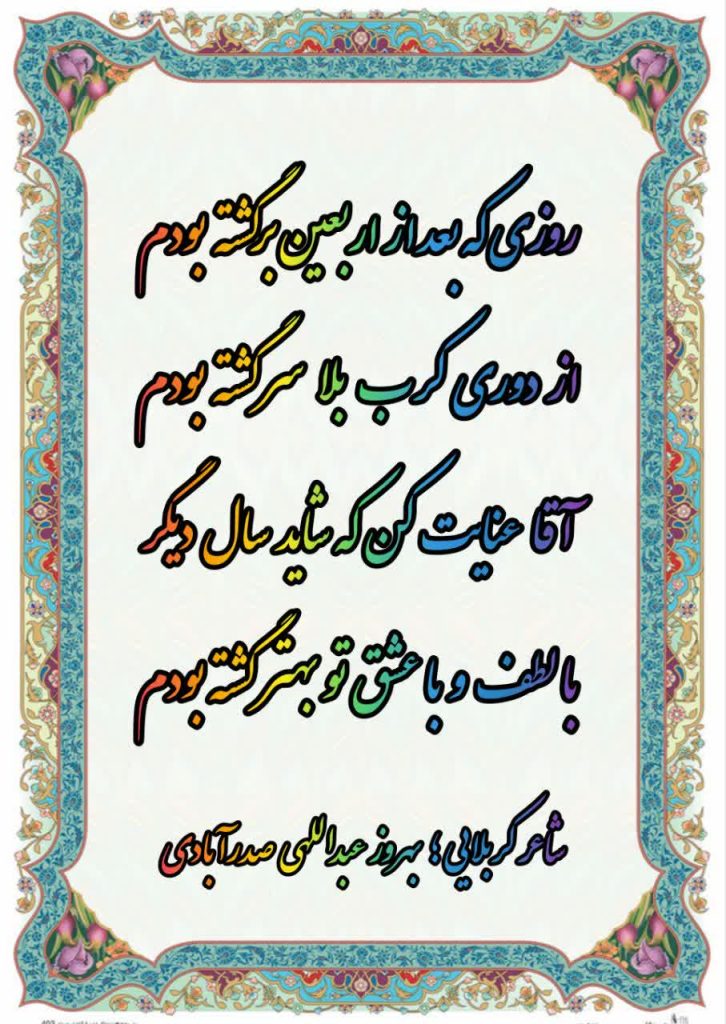 روزی که بعد از اربعین برگشته بودم
از دوری کرب بلا سرگشته بودم
آقا عنایت کن که شاید سال دیگر
با لطف و با عشق تو بهتر گشته بودم
شاعر کربلایی ؛ بهروز عبداللهی صدرآبادی